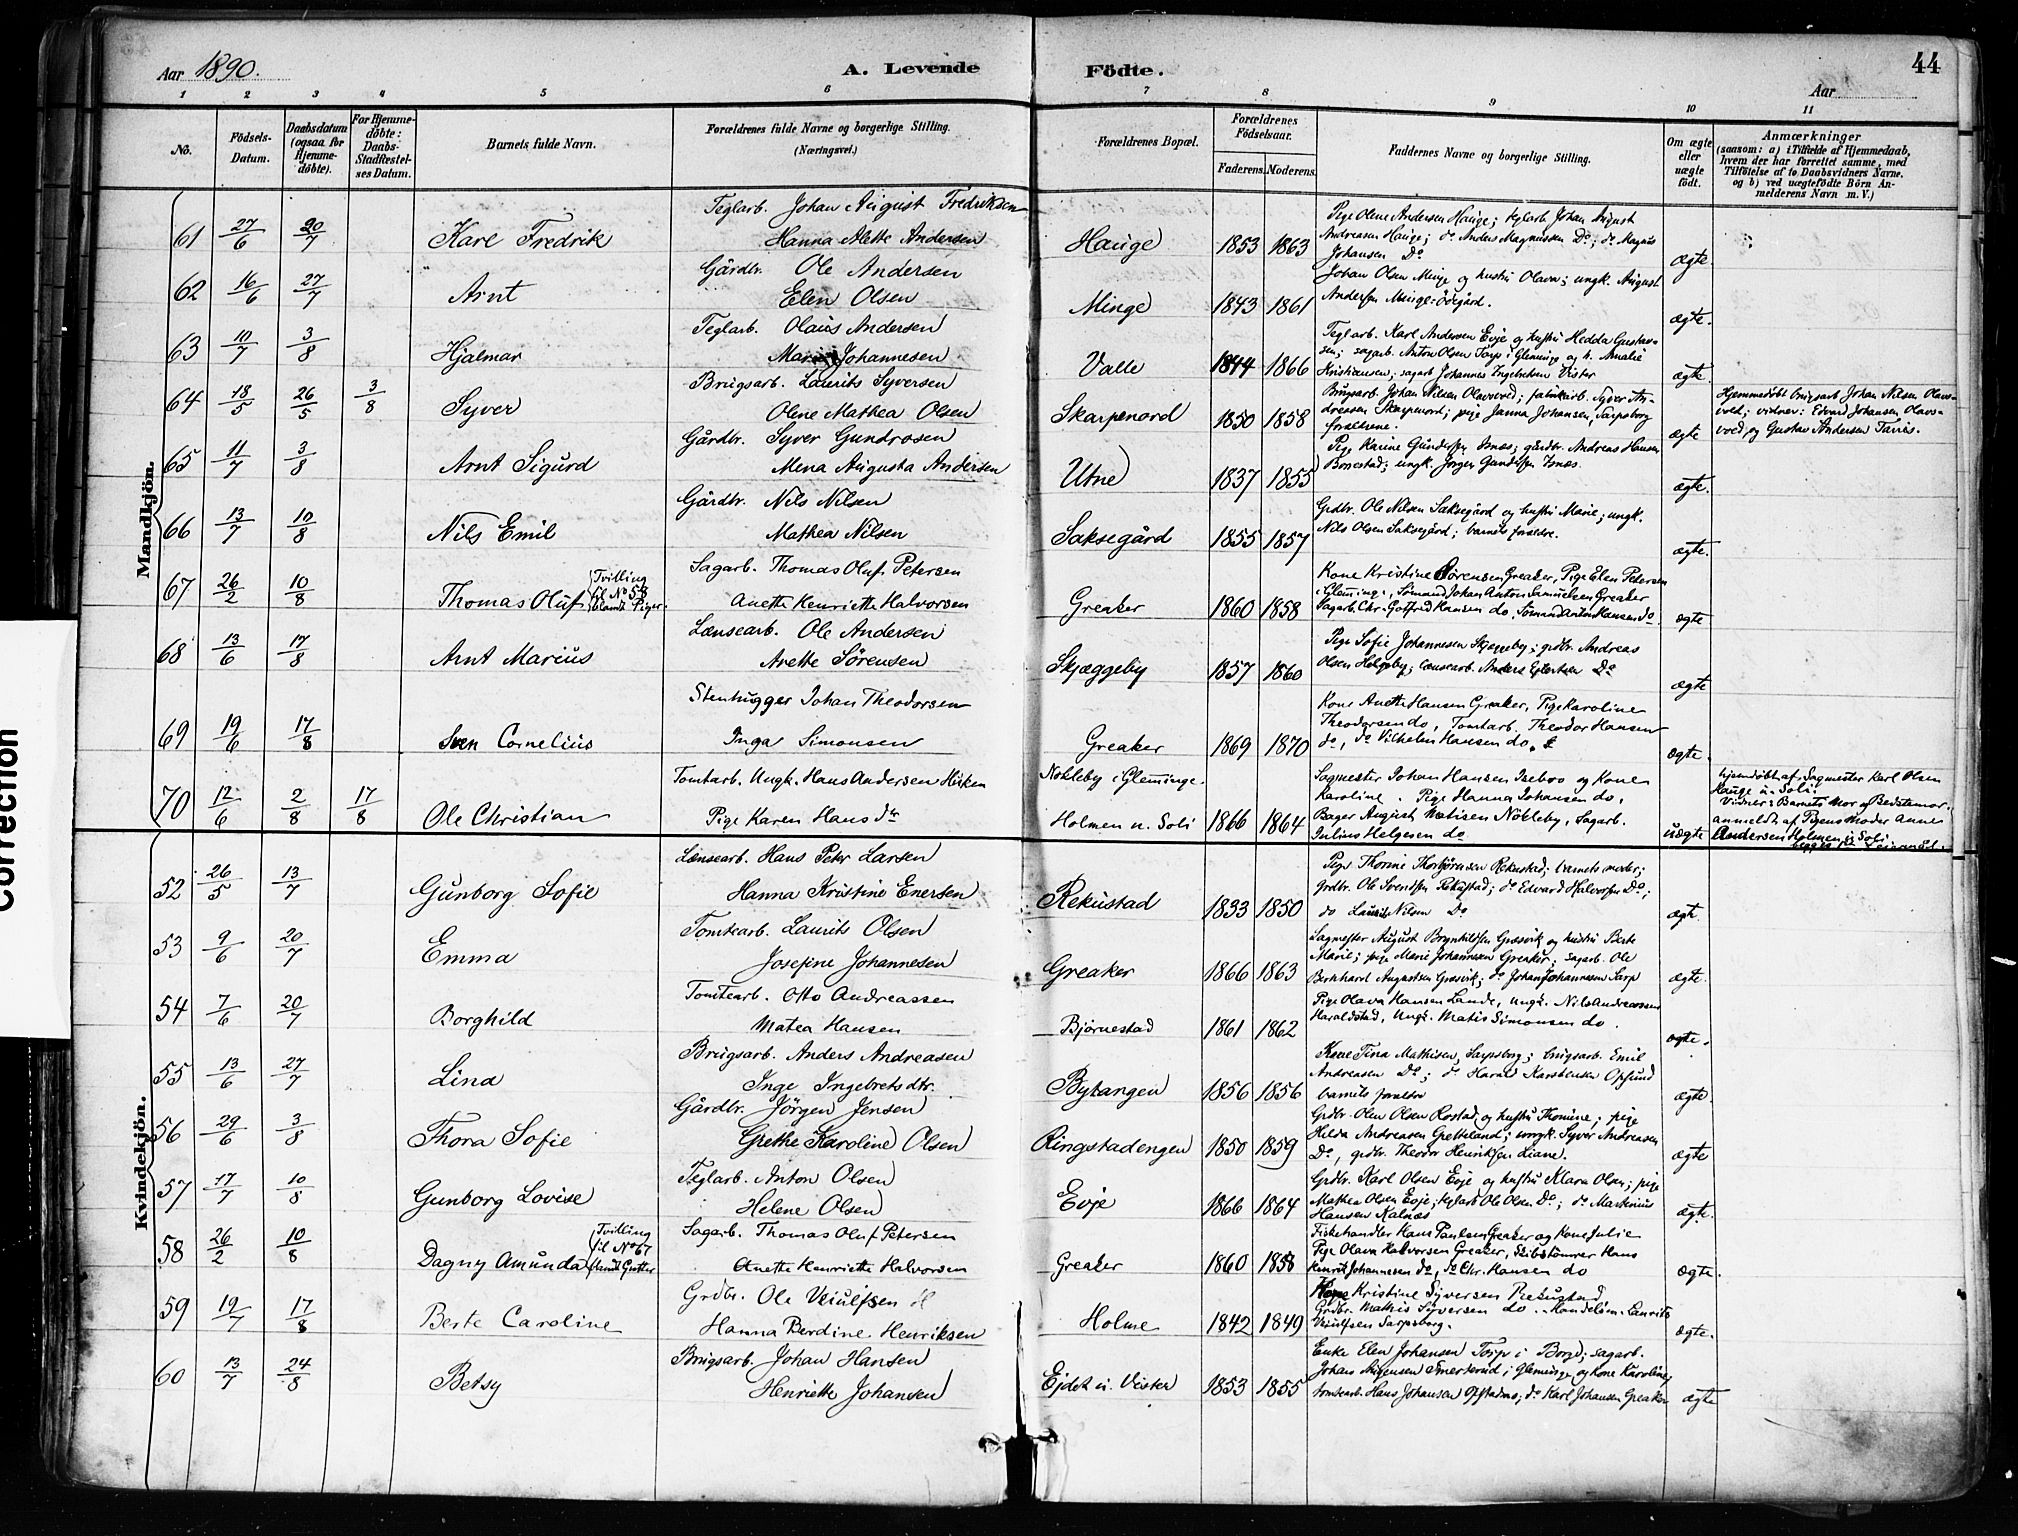 Aar 1890.
A. Levende Födte.
44
Aar
1 2 3 4 5 6 7 8 9 10 11
No.
Födsels-Datum.
Daabsdatum (ogsaa for Hjemme-döbte).
For Hjemme-döbte: Daabs-Stadfæstel-ses Datum.
Barnets fulde Navn.
Forældrenes fulde Navne og borgerlige Stilling. (Næringsvei.)
Forældrenes Bopæl.
Forældrenes Födselsaar.
Faderens. Moderens.
Faddernes Navne og borgerlige Stilling.
Om ægte eller uægte födt.
Anmærkninger
(saasom: a) i Tilfælde af Hjemmedaab, hvem der har forrettet samme, med Tilföielse af to Daabsvidners Navne. og b) ved uægtefödte Börn An-melderens Navn m. V.)
Mandkjön.
61 27/6 20/7 Karl Fredrik
Teglarb. Johan August Fredriksen
Hanna Alette Andersen
Hauge 1853 1863
Pige Olene Andersen Hauge; teglarb. Johan August
Andreasen Hauge; do Anders Magnussen Do; do Magnus
Johansen Do
ægte.
62 16/6 27/7 Arnt
Gårdbr. Ole Andersen
Elen Olsen
Minge 1843 1861
Johan Olsen Minge og hustru Olava; ungk. August
Andersen Minge-Ödegård.
ægte.
63 10/7 3/8 Hjalmar
Teglarb. Olaus Andersen
Johannesen
Valle 1844 1866
Teglarb. Karl Andersen Evje og hustru Hedda Gustav-
sen; sagarb. Anton Olsen Torp i Glemminge og h. Amalie
Kristiansen; sagarb. Johannes Ingebretsen Vister
ægte.
64 18/5 26/5 3/8 Syver
Brugsarb. Laurits Syversen
Olene Mathea Olsen
Skarpenord 1850 1858
Brugsarb. Johan Nilsen Olavsved; fabrikarb. Syver An-
dreasen Skarpenord; pige Janna Johansen, Sarpsborg
forældrene.
ægte
Hjemmedöbt brugsarb. Johan Nilsen Olavs-
voed; vidner: Edvard Johansen Olavs-
voed og Gustav Andersen Tarris.
65 11/7 3/8 Arnt Sigurd
Gårdbr. Syver Gundrosen
Mena Augusta Andersen
Utne 1837 1855
Pige Karine Gundersen; gårdbr. Andreas Hansen
Bonestad; ungk. Jörgen Gundersen
ægte.
66 13/7 10/8 Nils Emil
Gårdbr. Nils Nilsen
Mathea Nilsen
Saksegård 1855 1857
Grdbr. Ole Nilsen Saksegård og hustru Marie; ungk.
Nils Olsen Saksegård; barnets forældre.
ægte.
67 26/2 10/8 Thomas Oluf (Tvilling til No 58 blandt Piger.
Sagarb. Thomas Oluf Petersen
Anette Henriette Halvorsen
Greaker 1860 1858
Kone Kristine Sörensen Greaker, Pige Elen Petersen
i Glemminge, Sömand Johan Anton Samuelsen Greaker
Sagarb. Chr. Gotfred Hansen do, Sömand Anton Hansen do
ægte
68 13/6 17/8 Arnt Marius
Lænsearb. Ole Andersen
Anette Sörensen
Skjæggeby 1857 1860
Pige Sofie Johannesen Skjæggeby; grdbr. Andreas
Olsen Helgeby; Lænsearb. Anders Eilertsen Do
ægte
69 19/6 17/8 Sven Cornelius
Stenhugger Johan Theodorsen
Inga Simonsen
Greaker 1869 1870
Kone Anette Hansen Greaker, Pige Karoline
Theodorsen do, Tomtarb. Theodor Hansen
do, do Vilhelm Hansen do.
ægte.
70 12/6 2/8 17/8 Ole Christian
Tomtarb. Ungk. Hans Andersen
Pige Karen Hans dtr
Nökleby i Glemminge.
Holmen u. Soli 1866 1864
Sagmester Johan Hansen Iseboo og Kone
Karoline. Pige Hanna Johansen do,
Bager August Matisen Nökleby, Sagarb.
Julius Helgesen do
uægte
hjemdöbt af Sagmester Karl Olsen
Hauge u. Soli.
Vidner: Barnets Mor og Bedstemor.
anmeldt af Pigens Moder Anne
Andersen Holmen u. Soli
Kvindekjön.
52 26/5 13/7 Gunborg Sofie
Lænsearb. Hans Peter Larsen
Hanna Kristine Enersen
Rekustad 1833 1850
Pige Thorine Thorbjörnsen Rekustad; barnets moder;
grdbr. Ole Svendsen Rekustad; do Edvard Halvorsen Do;
do Laurits Nilsen Do
ægte.
53 9/6 20/7 Emma
Tomtearb. Laurits Olsen
Josefine Johannesen
Greaker 1866 1863
Sagmester August Brynhildsen Græsvik og hustru Berte
Marie; pige Marie Johannesen Greaker; sagarb. Ole
Bernhard Augustsen Græsvik; do Johan Johannesen Sarp
ægte.
54 7/6 20/7 Borghild
Tomtearb. Otto Andreassen
Matea Hansen
Björnestad 1861 1862
Pige Olava Hansen Lande, Ungk. Nils Andreassen
Haraldstad, Ungk. Matis Simonsen do.
ægte.
55 13/6 27/7 Lina
Brugsarb. Anders Andreasen
Inge Ingebrets dtr.
Bytangen 1856 1856
Kone Tina Mathisen, Sarpsborg; brugsarb. Emil
Andreasen Do; do Harald Karstensen Opsund
barnets forældre
ægte.
56 29/6 3/8 Thora Sofie
Gårdbr. Jörgen Jensen
Grethe Karoline Olsen
Ringstadengen 1850 1859
Grdbr. Olen Olsen Rostad og hustru Thomine; pige
Hilda Andreasen Gretteland; ungk. Syver Andreasen
Do, grdbr. Theodor Henriksen Liane.
ægte
57 17/7 10/8 Gunborg Lovise
Teglarb. Anton Olsen
Helene Olsen
Evje 1866 1864
Grdbr. Karl Olsen Evje og hustru Klara Olsen; pige
Mathea Olsen Evje; teglarb. Ole Olsen Do; do Martinius
Hansen Kalnæs
ægte.
58 26/2 10/8 Dagny Amunda (Tvilling til No 67 blandt Gutter
Sagarb. Thomas Oluf Petersen
Anette Henriette Halvorsen
Greaker 1860 1858
Fiskehandler Hans Paulsen Greaker og Kone Julie
Pige Olava Halvorsen Greaker, Skibstömrer Hans
Henrik Johannesen do, do Chr. Hansen do
ægte.
59 19/7 17/8 Berte Caroline
Grdbr. Ole Veiulfsen
Hanna Berdine Henriksen
Holme 1842 1849
Kone Kristine Syversen Rekustad
Grdbr. Mathis Syversen do. Handelsm. Laurits
Veiulfsen Sarpsborg.
ægte.
60 13/7 24/8 Betsy
Brugsarb. Johan Hansen
Henriette Johansen
Ejdet u. Vister 1853 1855
Enke Elen Johansen Torp i Borge; sagarb.
Johans Jörgensen Smertuend i Glemminge og kone Karoline;
tomtearb. Hans Johansen Opstadmo; do Karl Johansen Greaker
ægte
Correction